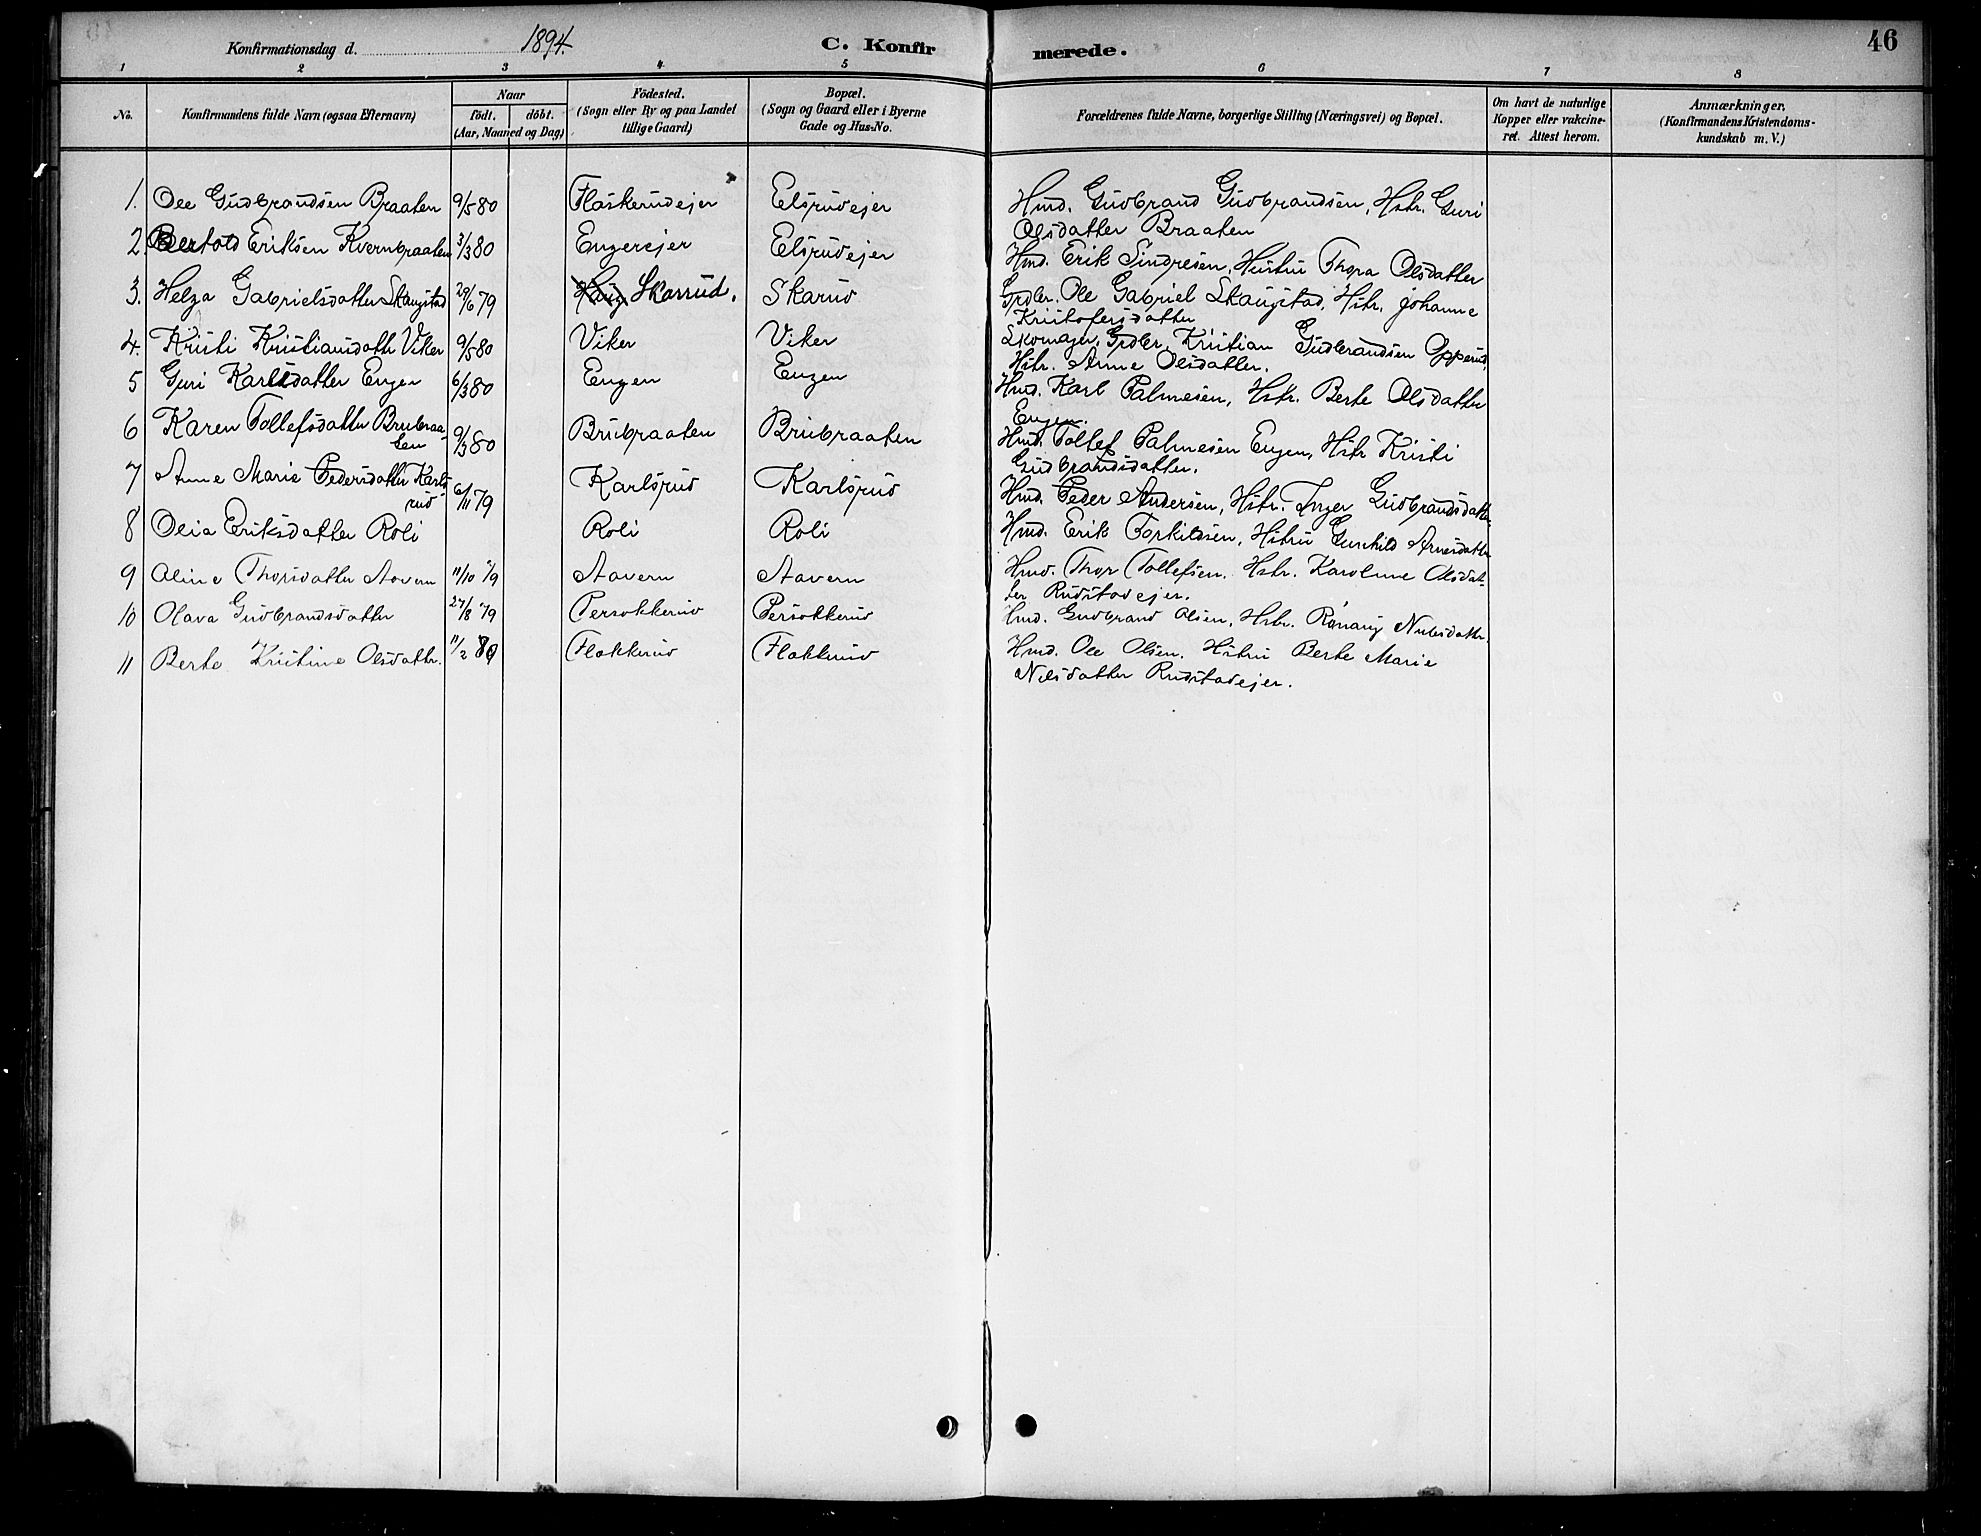 Konfirmationsdag d. 1894. C. Konfirmerede. 46
1 2 3 4 5 6 7 8
No. Konfirmandens fulde Navn (ogsaa Efternavn) Naar födt. döbt. (Aar, Maaned og Dag) Födested. (Sogn eller By og paa Landet tillige Gaard) Bopæl. (Sogn og Gaard eller i Byerne Gade og Hus-No. Forældrenes fulde Navne, borgerlige Stilling (Næringsvei) og Bopæl. Om havt de naturlige Kopper eller vakcineret. Attest herom. Anmærkninger. (Konfirmandens Kristendomskundskab m. V.)
1. Ole Gudbrandsen Braaten 9/5 80 Flaskerudejer Elsrudejer Hmd. Gudbrand Gudbrandsen, Hstr. Guri
Olsdatter Braaten
2. Bertold Eriksen Kvernbraaten 3/3 80 Engerejer Elsrudejer Hmd. Erik Sindresen, Hustru Thora Olsdatter
3. Helga Gabrielsdatter Skaugstad 29/6 79 Haug Skarrud. Skarud Grdbr. Ole Gabriel Skaugstad, Hstr. Johanne
Kristofersdatter
4. Kristi Kristiansdatter Viker 9/5 80 Viker Viker Skomager, Grdbr. Kristian Gudbrandsen Opperud,
Hstr. Anne Olsdatter.
5 Guri Karlsdatter Engen 6/3 80 Engen Engen Hmd. Karl Palmesen, Hstr. Berte Olsdatter
Engen.
6 Karen Tollefsdatter Brubraa-
ten 9/3 80 Brubraaten Brubraaten Hmd. Tollef Palmesen Engen, Hstr Kristi
Gudbrandsdatter.
7 Anne Marie Pedersdatter Karls-
rud 6/11 79 Karlsrud Karlsrud Hmd. Peder Andersen, Hstr. Inger Gudbrandsdatter
8 Olia Eriksdatter Roli Roli Roli Hmd. Erik Torkildsen, Hstru Gunhild Arnesdatter
9 Oline Thorsdatter Aavern 11/10 79 Aavern Aavern Hmd. Thor Tollefsen. Hstr. Karoline Olsdat-
ter Rudstadejer.
10 Olava Gudbrandsdatter 27/8 79 Persokkerud Persokkerud Hmd. Gudbrand Olsen, Hstr. Rønaug Nilsdatter.
11 Berte Kristine Olsdatter. 11/2 80 Flakkerud Flakkerud Hmd. Ole Olsen. Hstru Berte Marie
Nilsdatter Rudstadejer.